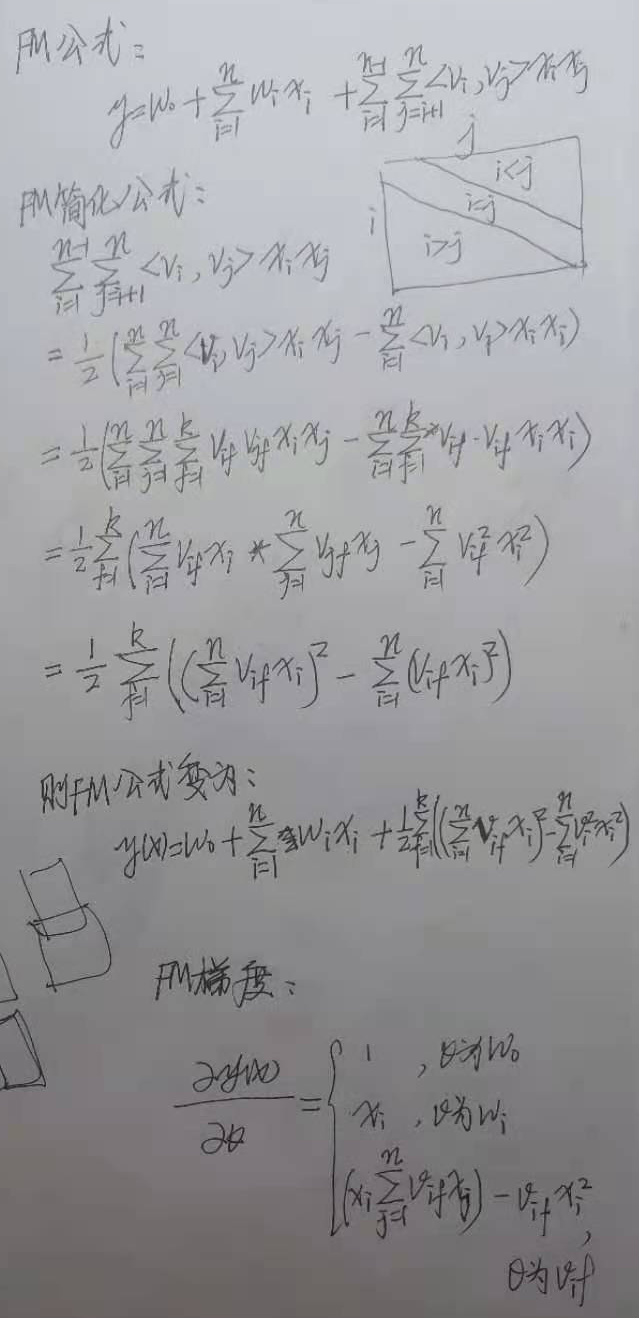 FM公式：
y=w₀+∑_{i=1}^{n} wᵢxᵢ+∑_{i=1}^{n-1}∑_{j=i+1}^{n}<vᵢ,vⱼ>xᵢxⱼ
j
i<j
i=j
i
i>j
FM简化公式：
∑_{i=1}^{n-1}∑_{j=i+1}^{n}<vᵢ,vⱼ>xᵢxⱼ
=1/2(∑_{i=1}^{n}∑_{j=1}^{n}<vᵢ,vⱼ>xᵢxⱼ-∑_{i=1}^{n}<vᵢ,vᵢ>xᵢxᵢ)
=1/2(∑_{i=1}^{n}∑_{j=1}^{n}∑_{f=1}^{k} v_{if}v_{jf}xᵢxⱼ-∑_{i=1}^{n}∑_{f=1}^{k} v_{if}·v_{if}xᵢxᵢ)
=1/2∑_{f=1}^{k}(∑_{i=1}^{n}v_{if}xᵢ*∑_{j=1}^{n}v_{jf}xⱼ-∑_{i=1}^{n}v_{if}²xᵢ²)
=1/2∑_{f=1}^{k}((∑_{i=1}^{n}v_{if}xᵢ)²-∑_{i=1}^{n}(v_{if}xᵢ)²)
则FM公式变为：
y(x)=w₀+∑_{i=1}^{n}wᵢxᵢ+1/2∑_{f=1}^{k}((∑_{i=1}^{n}v_{if}xᵢ)²-∑_{i=1}^{n}v_{if}²xᵢ²)
FM梯度：
∂y(x)/∂θ={1，θ为w₀
xᵢ，θ为wᵢ
(xᵢ∑_{j=1}^{n}v_{if}xⱼ)-v_{if}xᵢ²，
θ为v_{if}